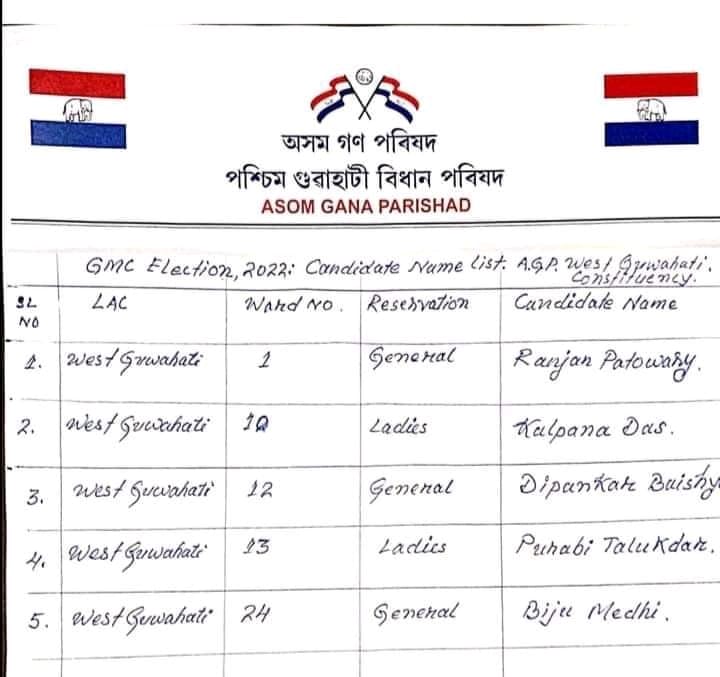 অসম গণ পৰিষদ
পশ্চিম গুৱাহাটী বিধান পৰিষদ
ASOM GANA PARISHAD
GMC Election, 2022: Candidate Name list. A.G.P. West Guwahati.
Constituency.
SL NO LAC Ward No. Reservation Candidate Name
1. West Guwahati 1 General Ranjan Patowary.
2. West Guwahati 10 Ladies Kalpana Das.
3. West Guwahati 12 General Dipankar Baishy
4. West Guwahati 13 Ladies Purabi Talukdar.
5. West Guwahati 24 General Biju Medhi.